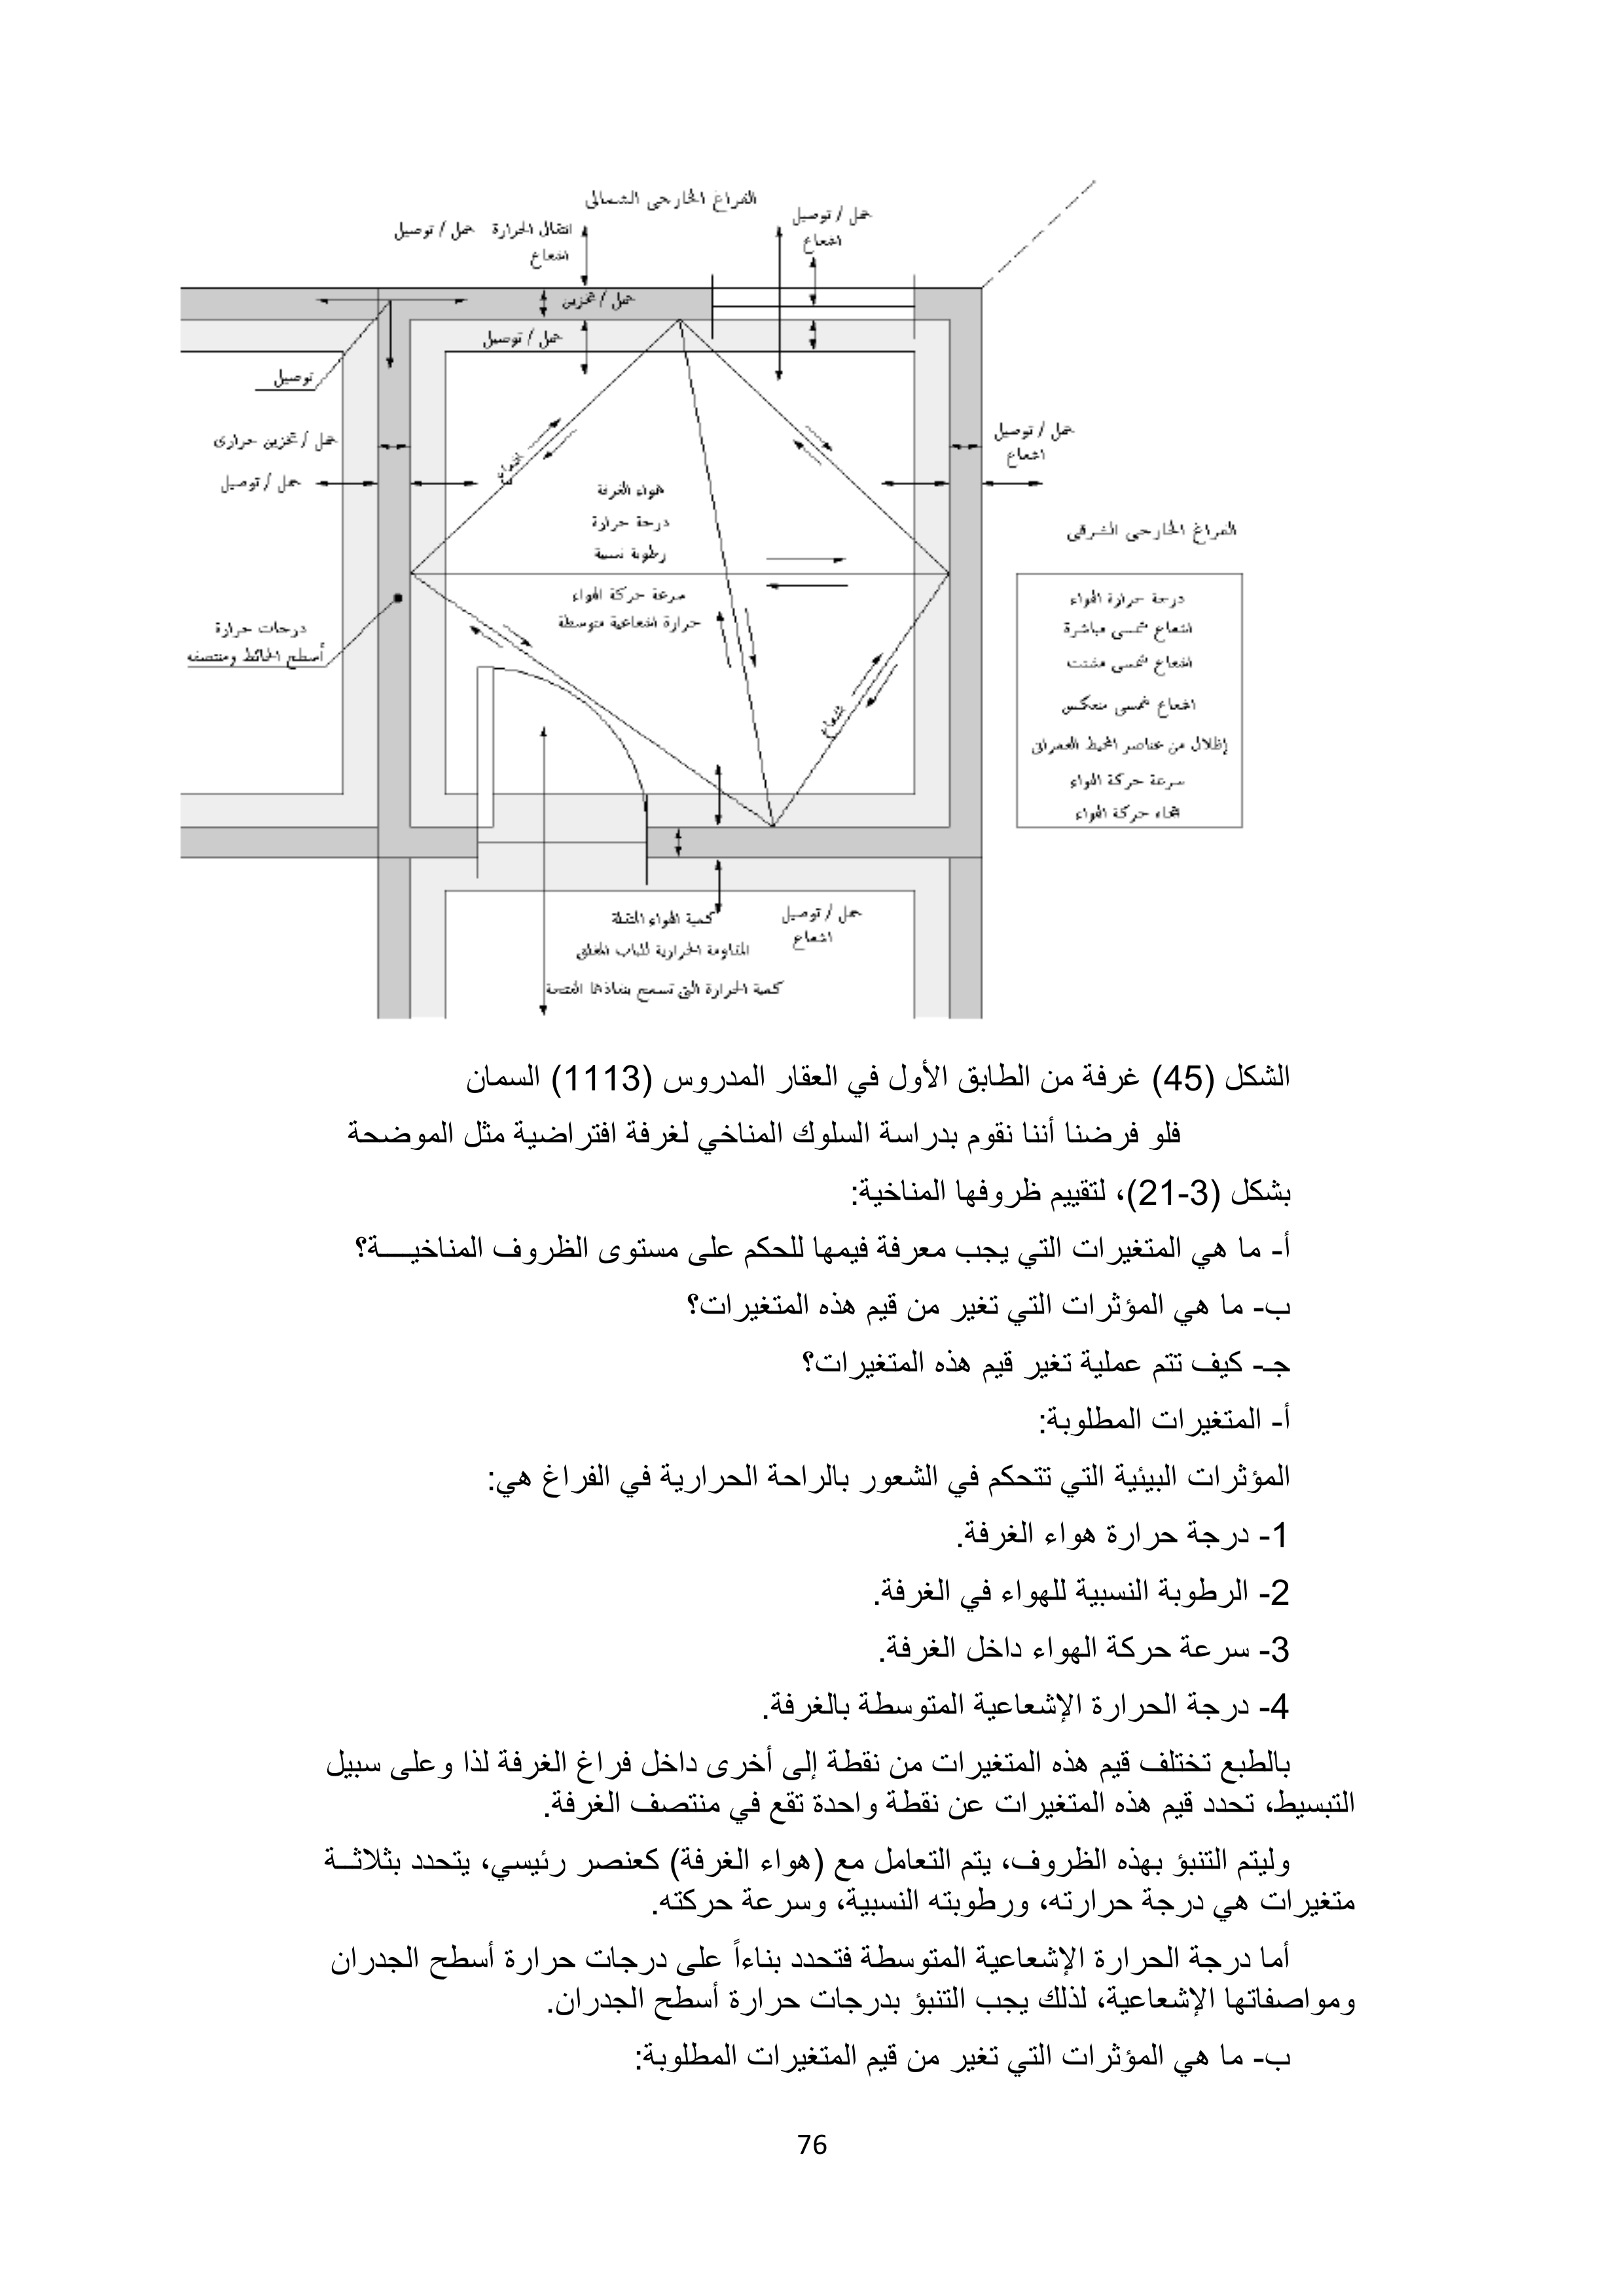 الفراغ الخارجي الشمالي
حمل / توصيل
اشعاع
انتقال الحرارة
اشعاع
حمل / توصيل
حمل / تخزين
حمل / توصيل
توصيل
حمل / تخزين حرارى
حمل / توصيل
حمل / توصيل
اشعاع
اشعاع
هواء الغرفة
درجة حرارة
رطوبة نسبية
سرعة حركة الهواء
حرارة اشعاعية متوسطة
الفراغ الخارجي الشرقي
درجة حرارة الهواء
اشعاع شمسى مباشرة
اشعاع شمسى مشتت
اشعاع شمسى منعكس
إظلال من عناصر المحيط العمرانى
سرعة حركة الهواء
اتجاه حركة الهواء
درجات حرارة
أسطح الحائط ومنتصفه
اشعاع
كمية الهواء المتنقلة
المقاومة الحرارية للباب المغلق
كمية الحرارة التى تسمح بنفاذها الفتحة
حمل / توصيل
اشعاع
الشكل (45) غرفة من الطابق الأول في العقار المدروس (1113) السمان
فلو فرضنا أننا نقوم بدراسة السلوك المناخي لغرفة افتراضية مثل الموضحة
بشكل (3-21)، لتقييم ظروفها المناخية:
أ- ما هي المتغيرات التي يجب معرفة فيمها للحكم على مستوى الظروف المناخيــــة؟
ب- ما هي المؤثرات التي تغير من قيم هذه المتغيرات؟
جـ- كيف تتم عملية تغير قيم هذه المتغيرات؟
أ- المتغيرات المطلوبة:
المؤثرات البيئية التي تتحكم في الشعور بالراحة الحرارية في الفراغ هي:
1- درجة حرارة هواء الغرفة.
2- الرطوبة النسبية للهواء في الغرفة.
3- سرعة حركة الهواء داخل الغرفة.
4- درجة الحرارة الإشعاعية المتوسطة بالغرفة.
بالطبع تختلف قيم هذه المتغيرات من نقطة إلى أخرى داخل فراغ الغرفة لذا وعلى سبيل
التبسيط، تحدد قيم هذه المتغيرات عن نقطة واحدة تقع في منتصف الغرفة.
وليتم التنبؤ بهذه الظروف، يتم التعامل مع (هواء الغرفة) كعنصر رئيسي، يتحدد بثلاثــة
متغيرات هي درجة حرارته، ورطوبته النسبية، وسرعة حركته.
أما درجة الحرارة الإشعاعية المتوسطة فتحدد بناءاً على درجات حرارة أسطح الجدران
ومواصفاتها الإشعاعية، لذلك يجب التنبؤ بدرجات حرارة أسطح الجدران.
ب- ما هي المؤثرات التي تغير من قيم المتغيرات المطلوبة:
76